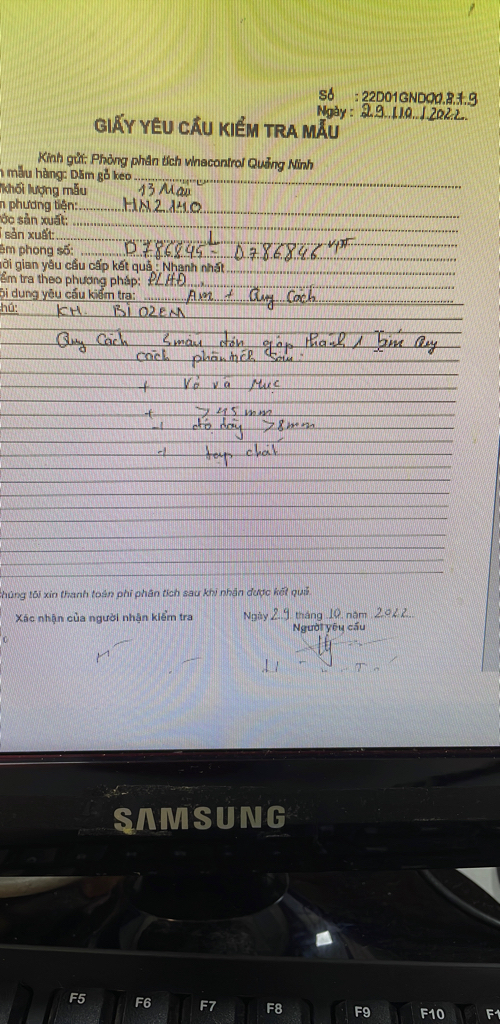 Số : 22D01GND00.819
Ngày : 29./10./2022
GIẤY YÊU CẦU KIỂM TRA MẪU
Kính gửi: Phòng phân tích vinacontrol Quảng Ninh
mẫu hàng: Dăm gỗ keo
khối lượng mẫu 13 Mẫu
phương tiện: HN2140
sản xuất:
sản xuất:
phong số: D786845 - D786846
gian yêu cầu cấp kết quả : Nhanh nhất
tra theo phương pháp: PLHĐ
dung yêu cầu kiểm tra: Ẩm + Quy Cách
KH. BIOZEM
Quy Cách 3 mẫu đơn gộp thành 1 Quy
cách phân tích sau:
+ Vỏ và Mục
+ >45 mm
+ độ dày >8mm
+ tạp chất
chúng tôi xin thanh toán phí phân tích sau khi nhận được kết quả
Xác nhận của người nhận kiểm tra
Ngày 29 tháng 10 năm 2022
Người yêu cầu
SAMSUNG
F5 F6 F7 F8 F9 F10